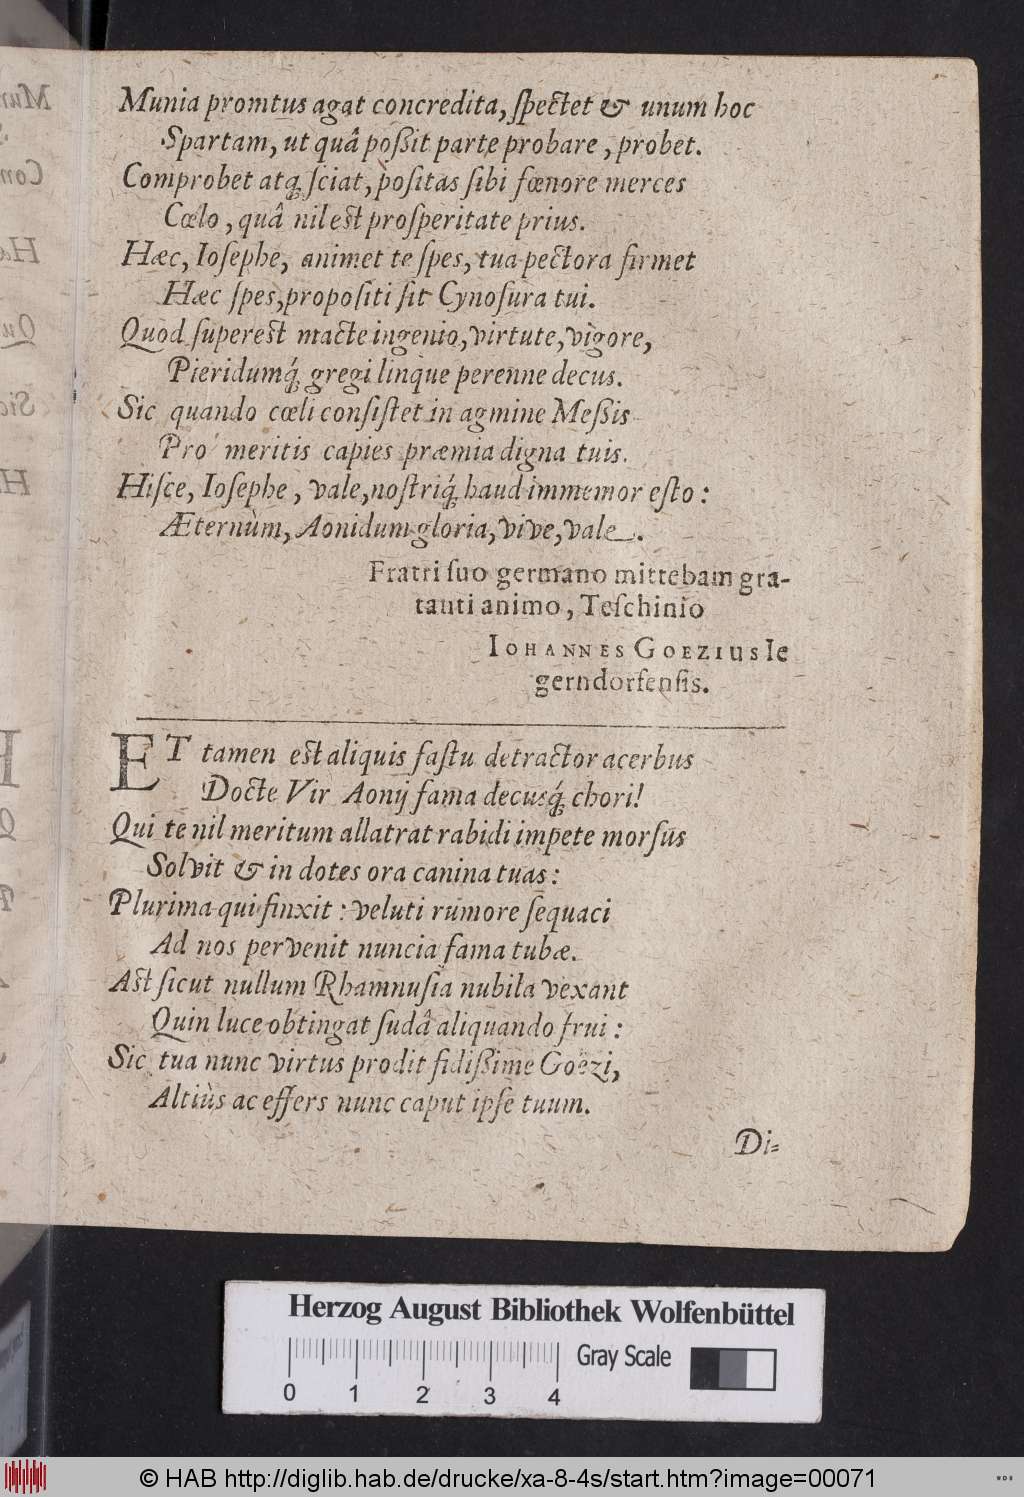 Munia promtus agat concredita, ſpectet & unum hoc
Spartam, ut quâ poßit parte probare, probet.
Comprobet atq́ ſciat, poſitas ſibi fœnore merces
Cœlo, quâ nil est proſperitate prius.
Hæc, Ioſephe, animet te ſpes, tua pectora firmet
Hæc ſpes, propoſiti ſit Cynoſura tui.
Quod ſuperest macte ingenio, virtute, vigore,
Pieridumq́ gregi linque perenne decus.
Sic quando cœli conſiſtet in agmine Meßis
Pro meritis capies præmia digna tuis.
Hiſce, Ioſephe, vale, noſtriq́ haud immemor eſto:
Æternùm, Aonidum gloria, vive, vale.
Fratri ſuo germano mittebam gra-
tanti animo, Teſchinio
IOHANNES GOEZIUS Ie
gerndorfenſis.
ET tamen est aliquis faſtu detractor acerbus
Docte Vir Aonij fama decusq́ chori!
Qui te nil meritum allatrat rabidi impete morſus
Solvit & in dotes ora canina tuas:
Plurima qui finxit: veluti rumore ſequaci
Ad nos pervenit nuncia fama tubæ.
Ast ſicut nullum Rhamnuſia nubila vexant
Quin luce obtingat ſudâ aliquando frui:
Sic tua nunc virtus prodit fidißime Goëzi,
Altiùs ac effers nunc caput ipſe tuum.
Di-
Herzog August Bibliothek Wolfenbüttel
Gray Scale
0 1 2 3 4
© HAB http://diglib.hab.de/drucke/xa-8-4s/start.htm?image=00071